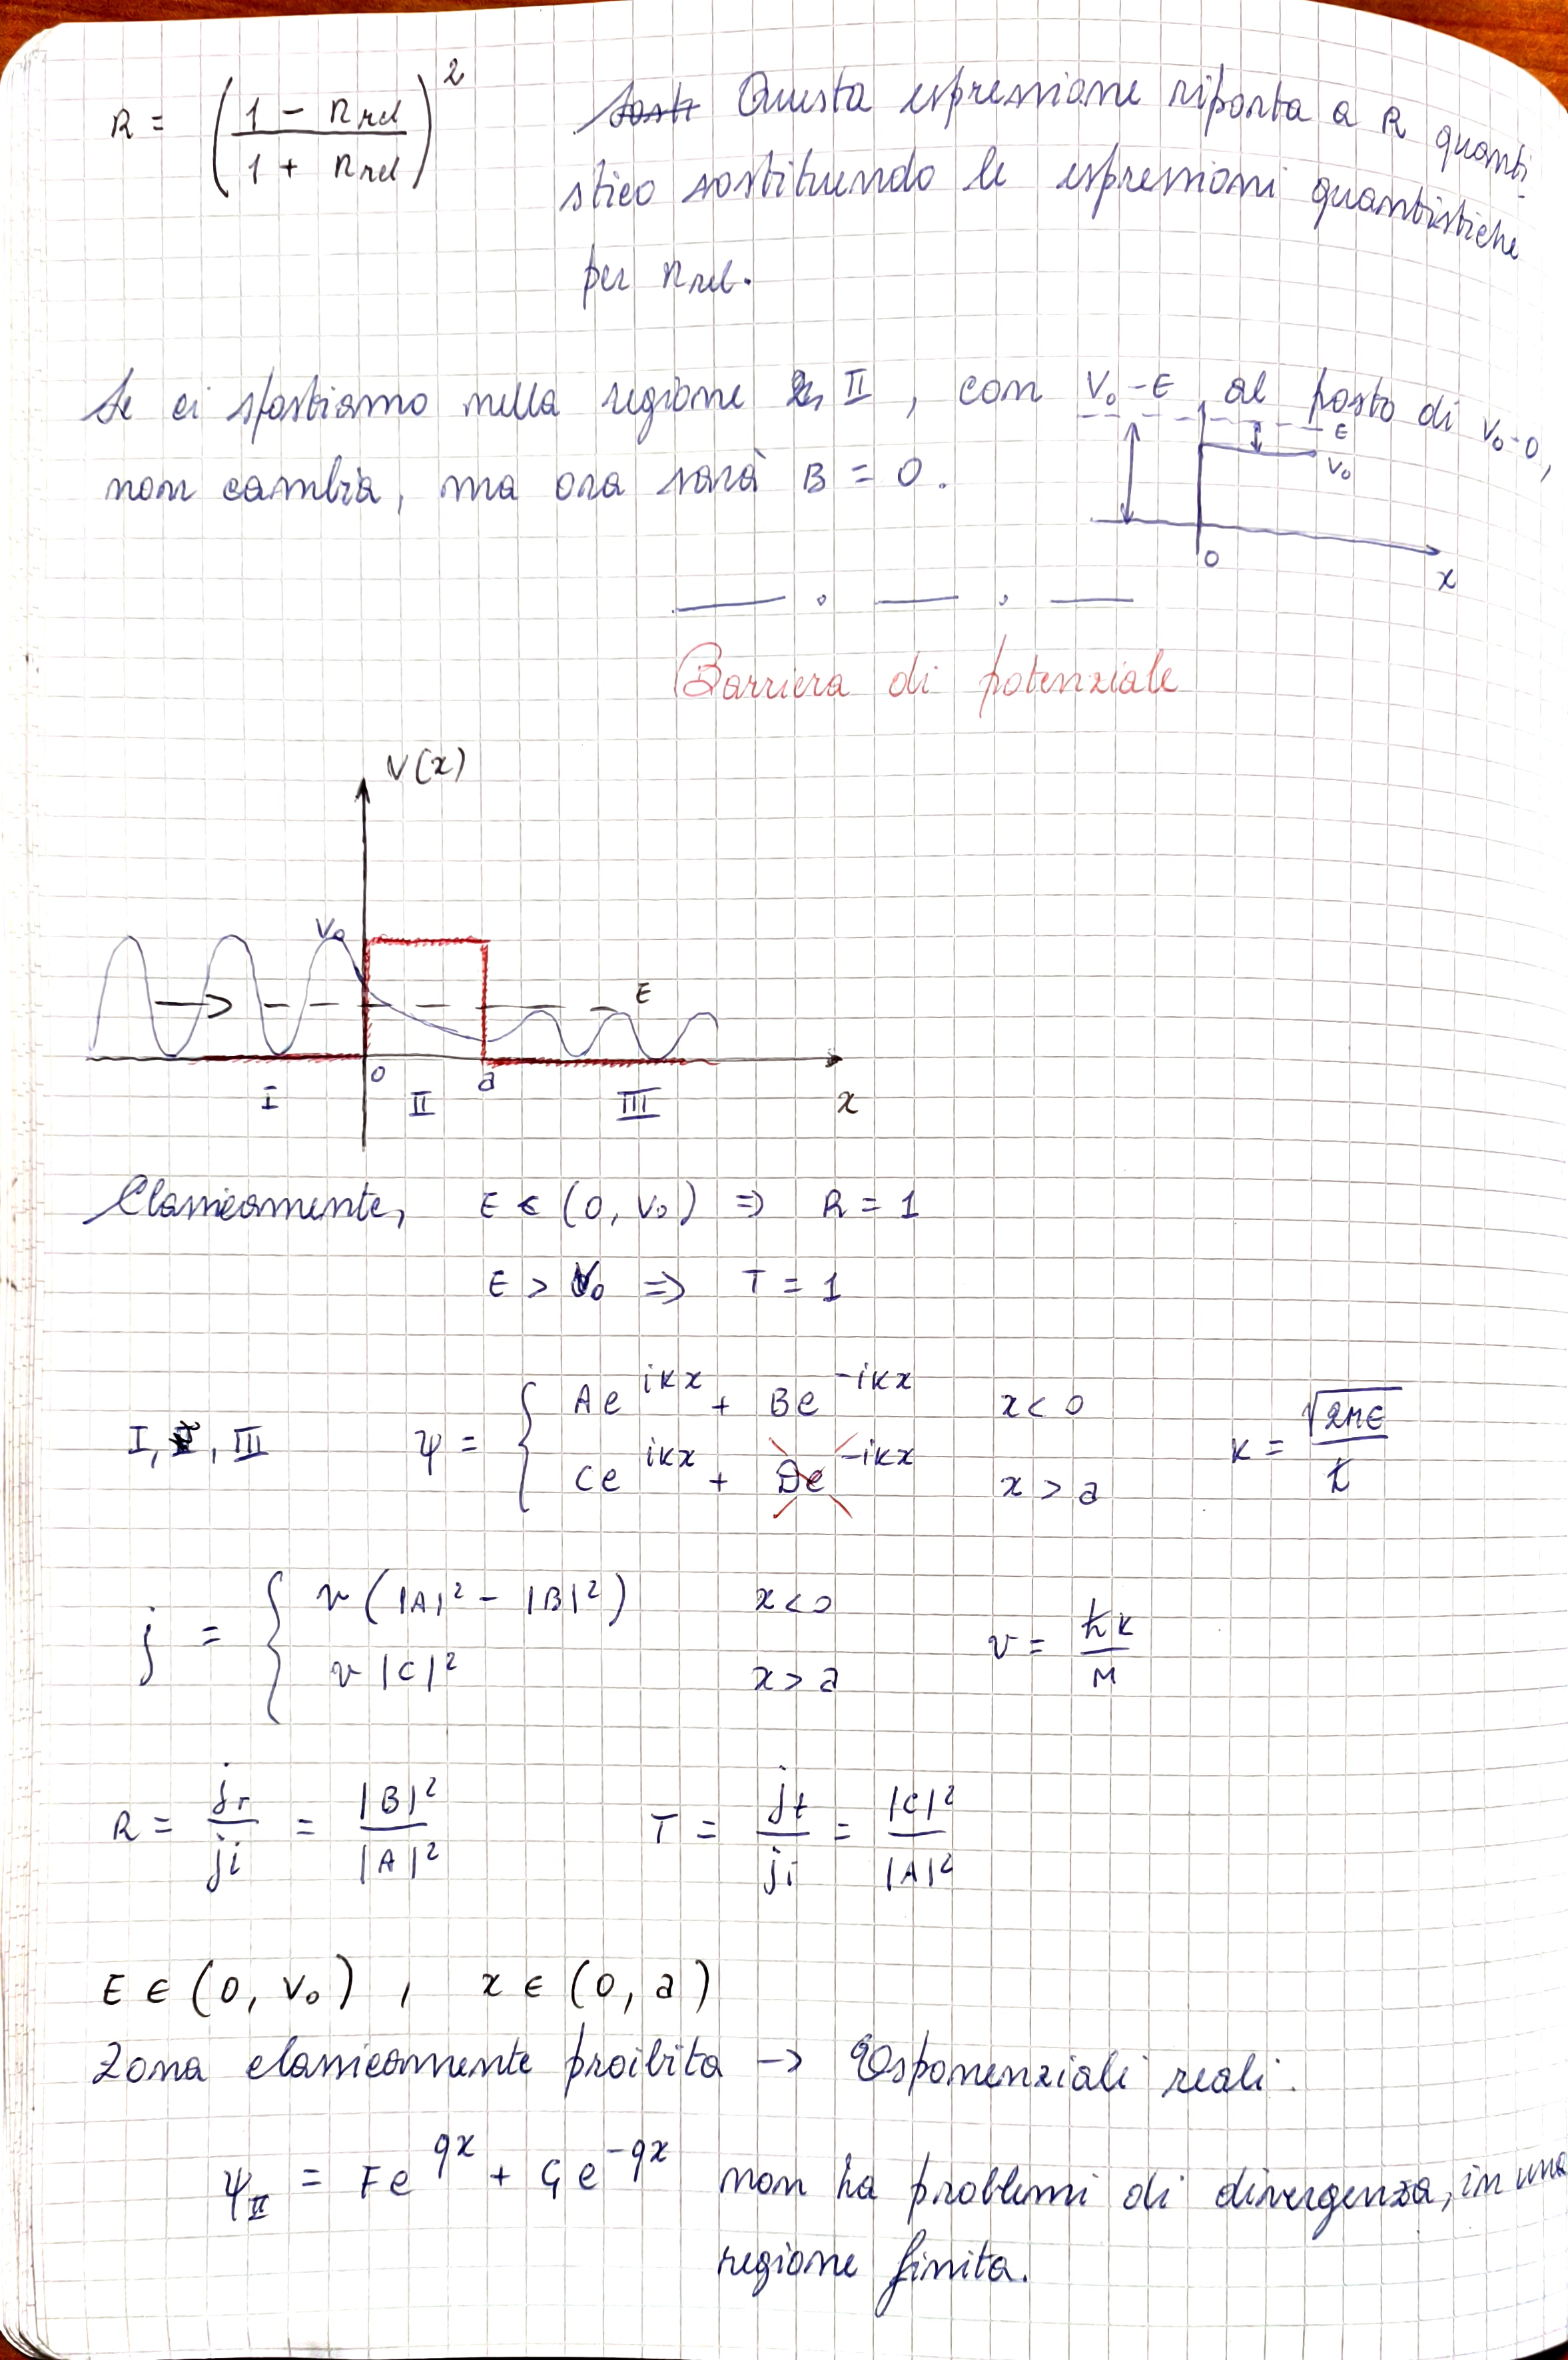 R = ((1 - n_rel)/(1 + n_rel))^2
Questa espressione riporta a R quanti-
stico sostituendo le espressioni quantistiche
per n_rel.
Se ci spostiamo nella regione II, con V₀-E al posto di V₀-0,
non cambia, ma ora sarà B = 0.
E
V₀
0
x
Barriera di potenziale
V(x)
V₀
E
0
a
I
II
III
x
Classicamente, E ∈ (0, V₀) ⇒ R = 1
E > V₀ ⇒ T = 1
I, III ψ = { Ae^{ikx} + Be^{-ikx} x < 0
Ce^{ikx} + De^{-ikx} x > a
k = √(2ME)/ħ
j = { v(|A|² - |B|²) x < 0
v|C|² x > a
v = ħk/M
R = jr/ji = |B|²/|A|² T = jt/ji = |C|²/|A|²
E ∈ (0, V₀), x ∈ (0, a)
Zona classicamente proibita → Esponenziali reali.
ψ_II = Fe^{qx} + Ge^{-qx} non ha problemi di divergenza, in una
regione finita.